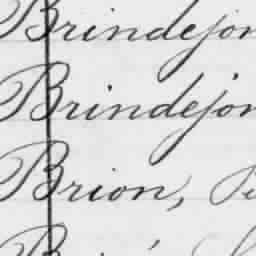 Brindejon
Brindejon
Brion,